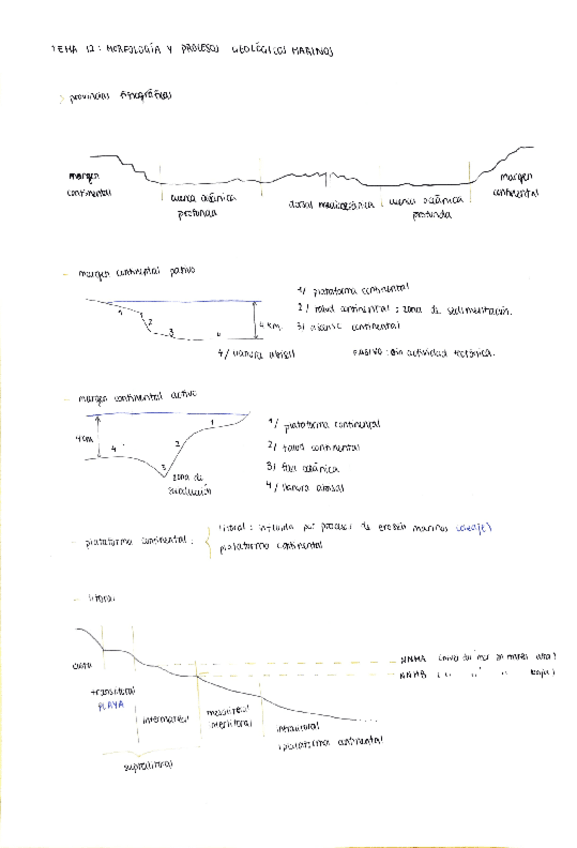 TEMA 12: MORFOLOGÍA Y PROCESOS GEOLÓGICOS MARINOS
> provincias fisiográficas
margen continental
cuenca oceánica profunda
dorsal mediooceánica
cuenca oceánica profunda
margen continental
- margen continental pasivo
1/ plataforma continental
2/ talud continental : zona de sedimentación.
3/
continental
4/ llanura abisal
PASIVO : sin actividad tectónica.
1
2
3
4 km.
- margen continental activo
1/ plataforma continental
2/ talud continental
3/ fosa oceánica
4/ llanura abisal
4 km
4
3
2
1
zona de subducción
- plataforma continental :
litoral : influida por procesos de erosión marinos (oleaje)
plataforma continental
- litoral
NNMA (nivel del mar en marea alta)
NNMB ( " " " " baja)
transitoral
PLAYA
intermareal
interlitoral
(plataforma continental
supralitoral